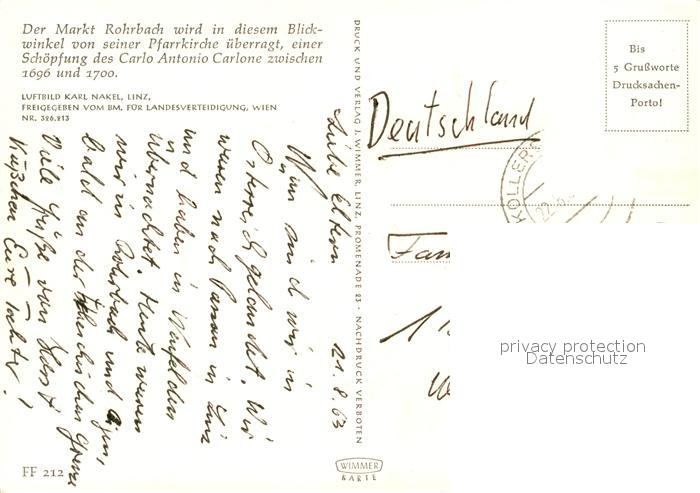 Der Markt Rohrbach wird in diesem Blick-
winkel von seiner Pfarrkirche überragt, einer
Schöpfung des Carlo Antonio Carlone zwischen
1696 und 1700.
LUFTBILD KARL NAKEL, LINZ,
FREIGEGEBEN VOM BM. FÜR LANDESVERTEIDIGUNG, WIEN
NR. 326.213
21.8.63
Liebe Eltern
Nun sind wir in
Österreich gelandet. Wir
waren nach Passau in Linz
und haben in Neufelden
übernachtet. Heute waren
wir in Rohrbach und
bald an der Tschechischen Grenze
Viele Grüße von Horst
Küßchen Eure Tochter!
FF 212
DRUCK UND VERLAG J. WIMMER, LINZ, PROMENADE 23 · NACHDRUCK VERBOTEN
WIMMER
KARTE
Bis
5 Grußworte
Drucksachen-
Porto!
Deutschland
KOLLER
22
Fam
privacy protection
Datenschutz